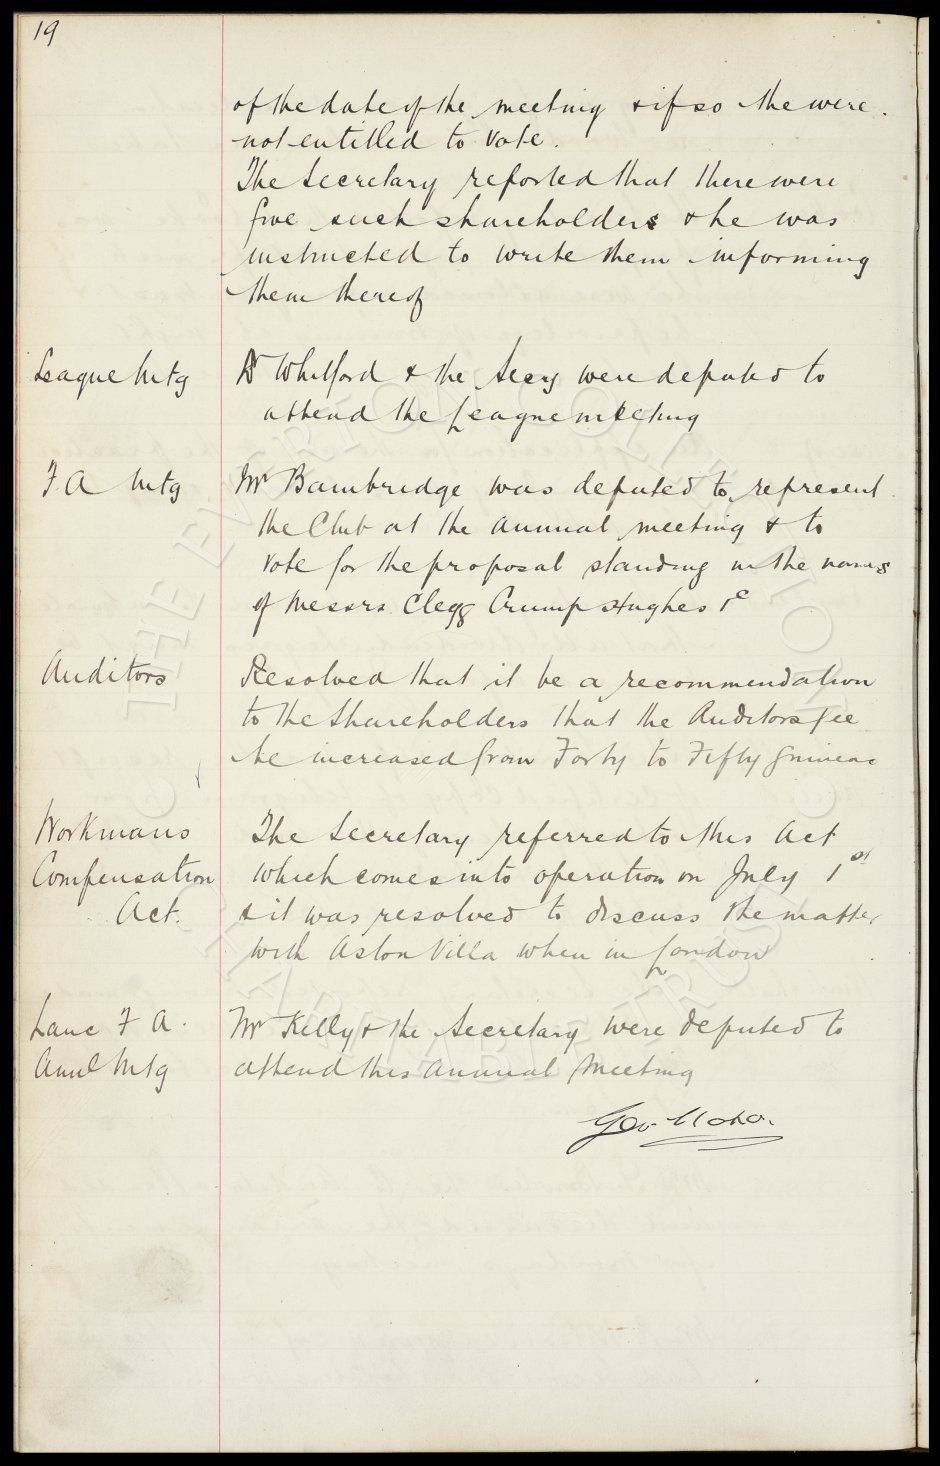 19
of the date of the meeting & if so the were
not entitled to vote.
The Secretary reported that there were
five such shareholders & he was
instructed to write them informing
them thereof
League Mtg
Dr Whitford & the Secy were deputed to
attend the League meeting
F A Mtg
Mr Bambridge was deputed to represent
the Club at the annual meeting & to
vote for the proposal standing in the names
of Messrs Clegg Crump & Hughes
Auditors
Resolved that it be a recommendation
to the Shareholders that the Auditors fee
be increased from Forty to Fifty guineas
Workmans
Compensation
Act.
The Secretary referred to this Act
which comes into operation on July 1st
& it was resolved to discuss the matter
with Aston Villa when in London
Lanc F A.
Annl Mtg
Mr Kelly & the Secretary were deputed to
attend this annual meeting
Geo.
THE EVERTON COLLECTION
CHARITABLE TRUST